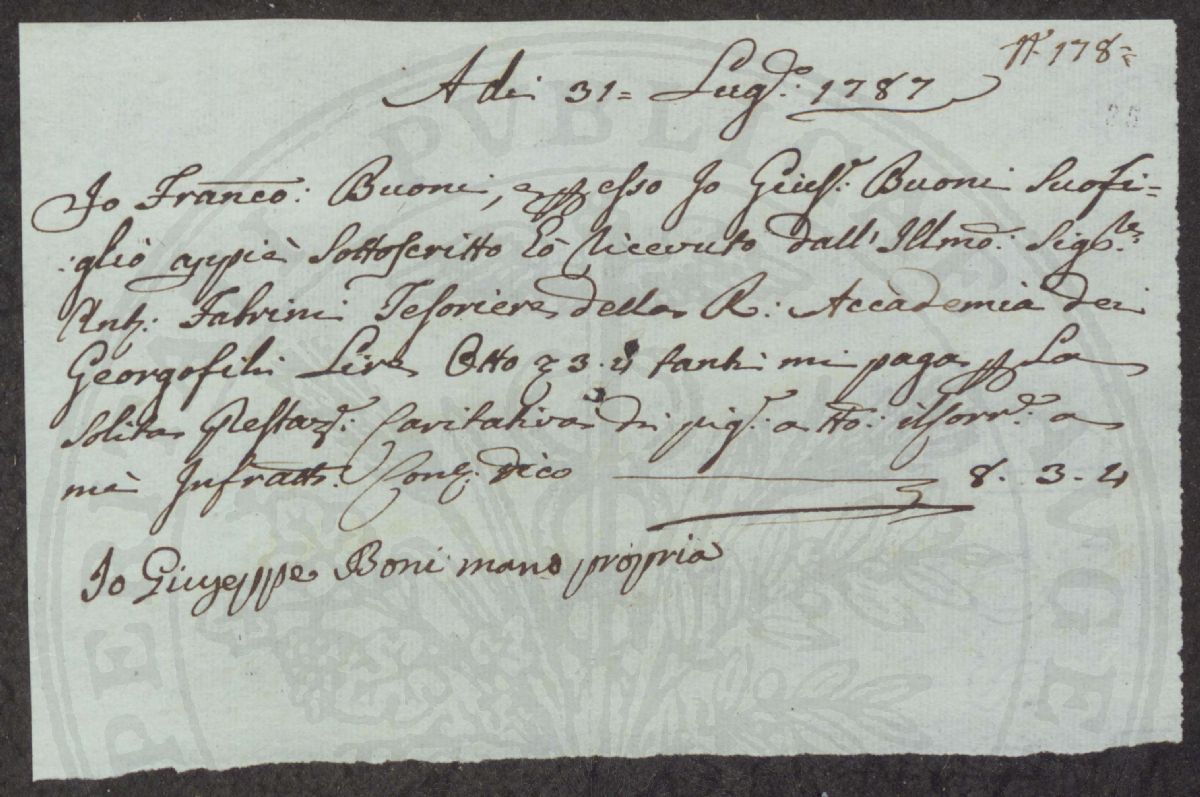 N. 178=
A di 31= Lug.o 1787
25
Io Franco: Buoni, e p esso Io Gius.e Buoni Suo fi=
:glio appiè Sottoscritto hò Ricevuto dall' Illmo: Sig.re
Ant.: Fabrini Tesoriere della R: Accademia dei
Georgofili Lire Otto 3. 4 tanti mi paga p La
Solita Prestaz.e: Caritativa di pig.e: a tto: il a
mè Infratto: dico 8. 3. 4
Io Giuseppe Boni mano propria
PVBLICAE